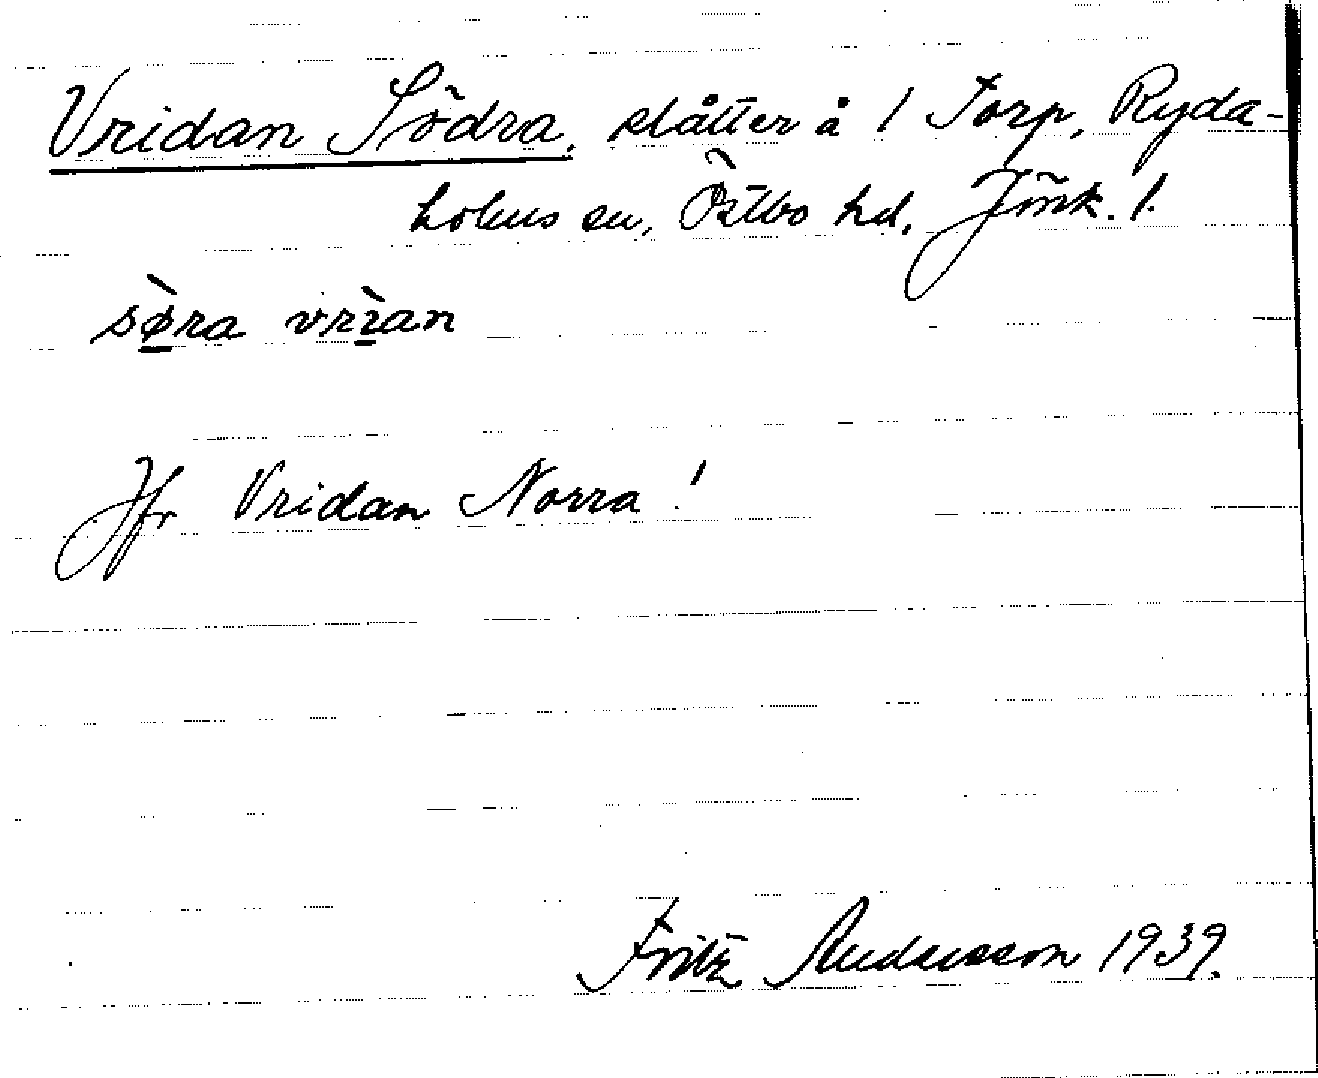 Vridan Södra, slåtter å 1 Torp, Ryda-
holms sn, Östbo hd, Jönk. l.
sø̀ra vrìan
Jfr Vridan Norra !
Fritz Andersson 1939.